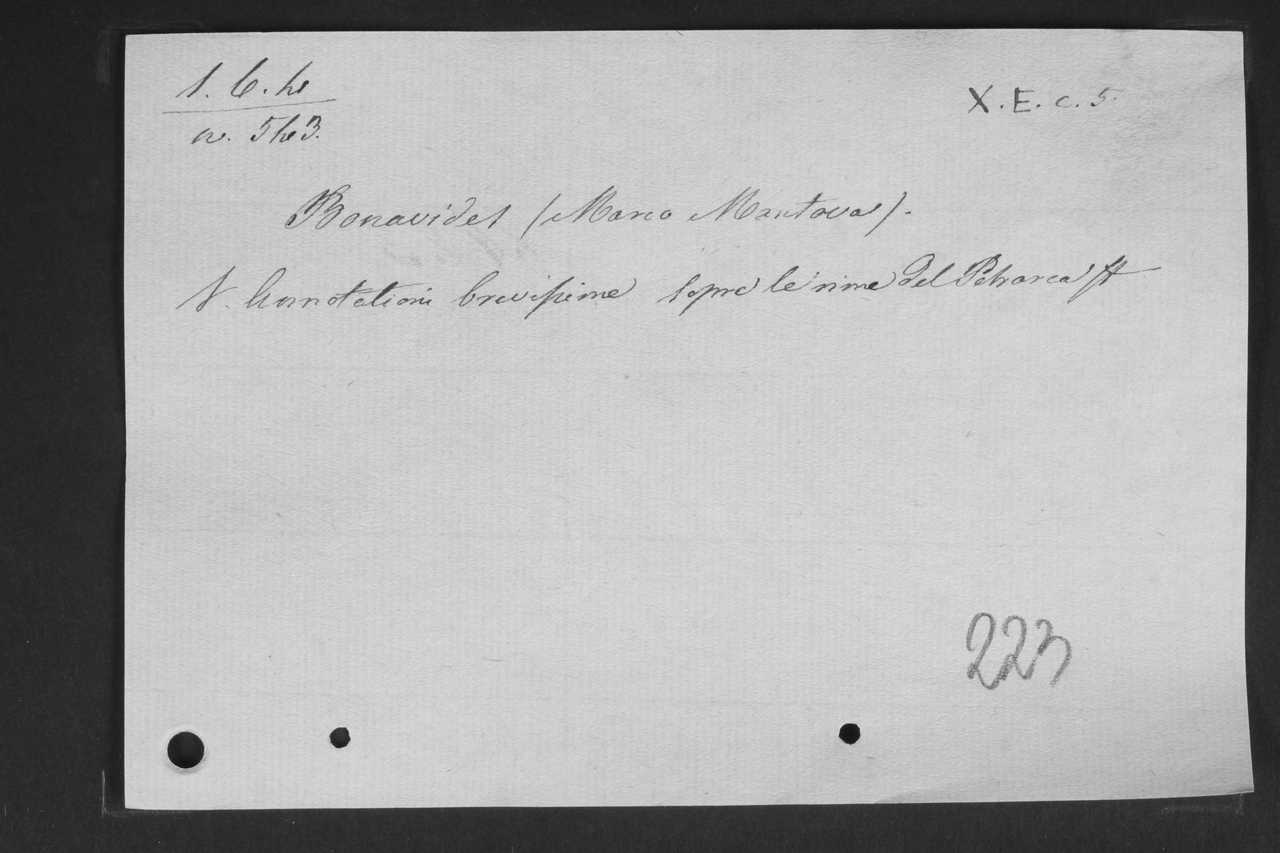 X. E. c. 5.
Bonavides (Marco Mantova).
Annotationi brevissime sopra le rime del Petrarca
223